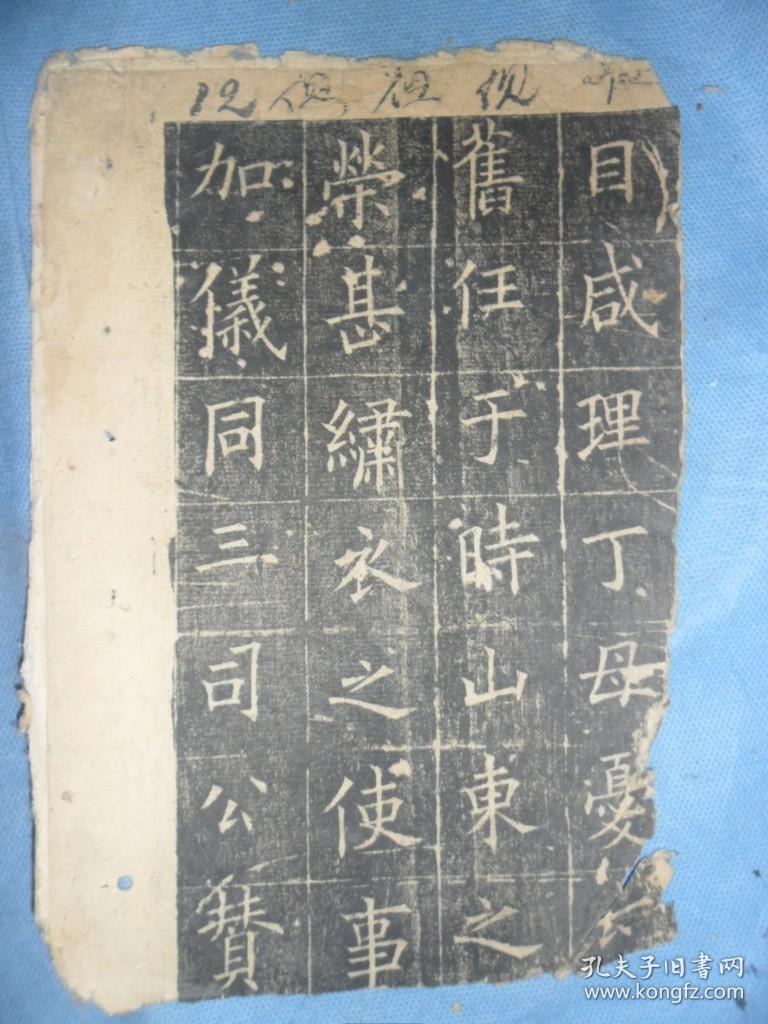 目咸理丁母憂
舊任于時山東之
榮甚繡衣之使事
加儀同三司公贊
孔夫子旧书网
www.kongfz.com